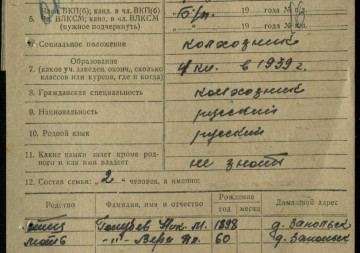 Член ВКП(б), канд. в чл. ВКП(б)
5. ВЛКСМ, канд. в чл. ВКСМ
(нужное подчеркнуть)
б/п. 19 года № п.б.
19 года № к.
6. Социальное положение колхозник
Образование
7. (каков уч. заведен. окончл., сколько
классов или курсов, где и когда)
4 кл. в 1939 г.
8. Гражданская специальность колхозник
9. Национальность русский
10. Родной язык русский
11. Какие языки знает кроме род-
ного и как ими владеет
не знает
12. Состав семьи: „2" человек, а именно:
Родство Фамилия, имя и отчество Рождение год месяц Домашний адрес
отец Голубев М. 1898
мать -"- Вера 60